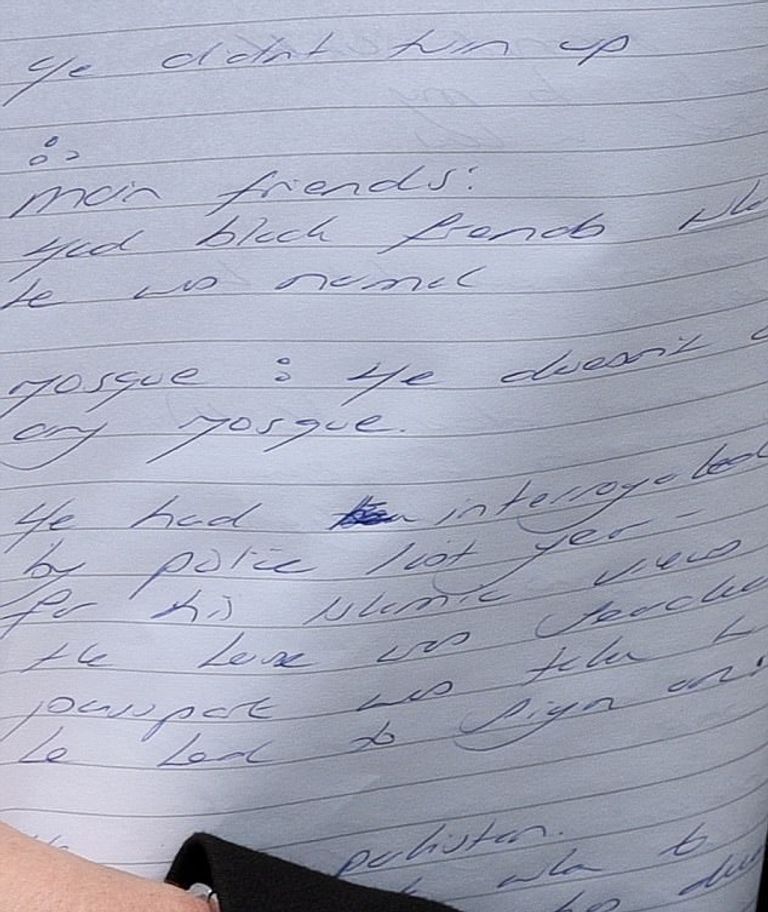 He didnt turn up
main friends:
Had black friends
he was normal
Mosque : He doesn't
any mosque.
He had interrogated
by police last year -
for his Islamic views
the house was searched
passport was taken
he had to sign
pakistan.
to